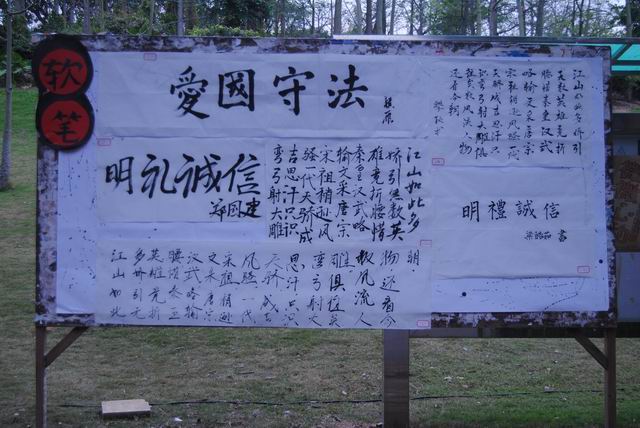 软
笔
愛國守法
明礼誠信
郑國建
江山如此多
娇引無数英
雄竞折腰惜
秦皇汉武略
输文采唐宗
宋祖稍逊风
骚一代天骄成
吉思汗只识
弯弓射大雕
江山如此多娇引
无数英雄竞折
腰惜秦皇汉武
略输文采唐宗
宋祖稍逊风骚一代
天骄成吉思汗只
识弯弓射大雕俱
往矣数风流人物
还看今朝
明禮誠信
書
江山如此
多娇引无
英雄竞折
腰惜秦皇
汉武略输
文采唐宗
宋祖稍逊
风骚一代
天骄成吉
思汗只识
弯弓射大
雕俱往矣
数风流人
物还看今
朝